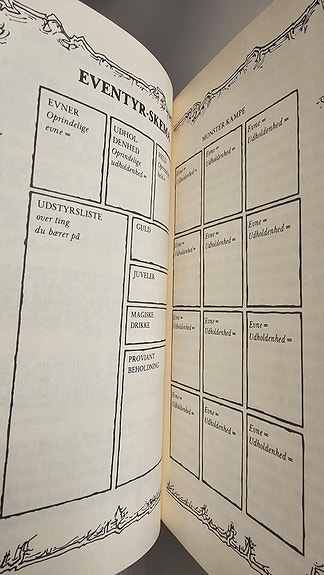 EVENTYR-SKEM
EVNER
Oprindelige
evne =
UDHOL
DENHED
Oprindelig
udholdenhed =
UDSTYRSLISTE
over ting
du bærer på
GULD
JUVELER
MAGISKE
DRIKKE
PROVIANT
BEHOLDNING
MONSTER KAMPE
Evne =
Udholdenhed =
Evne =
Udholdenhed =
Evne =
Udholdenhed =
Evne =
Udholdenhed =
Evne =
Udholdenhed =
Evne =
Udholdenhed =
Evne =
Udholdenhed =
Evne =
Udholdenhed =
Evne =
Udholdenhed =
Evne =
Udholdenhed =
Evne =
Udholdenhed =
Evne =
Udholdenhed =